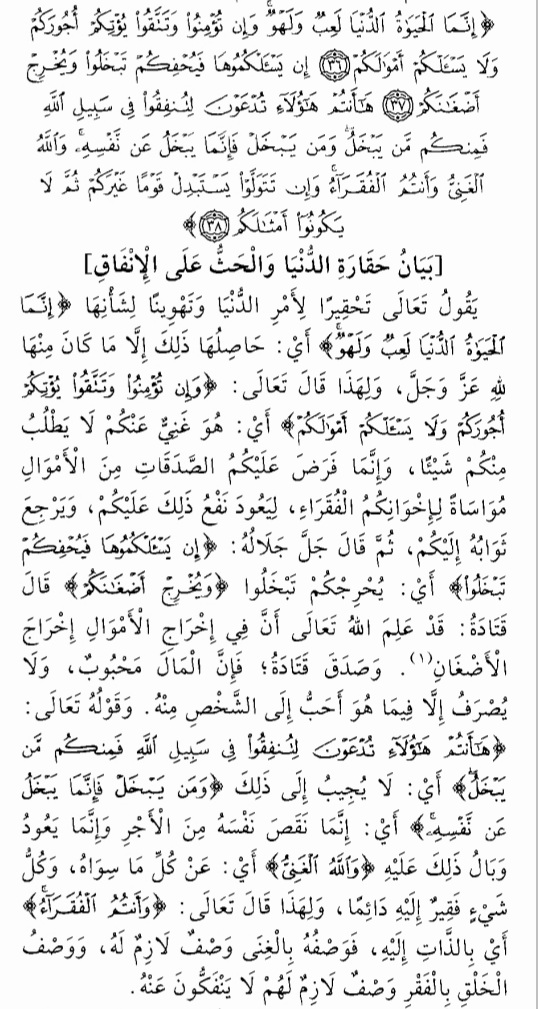 ﴿إِنَّمَا ٱلْحَيَوٰةُ ٱلدُّنْيَا لَعِبٌ وَلَهْوٌ ۚ وَإِن تُؤْمِنُوا۟ وَتَتَّقُوا۟ يُؤْتِكُمْ أُجُورَكُمْ
وَلَا يَسْـَٔلْكُمْ أَمْوَٰلَكُمْ ﴿٣٦﴾ إِن يَسْـَٔلْكُمُوهَا فَيُحْفِكُمْ تَبْخَلُوا۟ وَيُخْرِجْ
أَضْغَـٰنَكُمْ ﴿٣٧﴾ هَـٰٓأَنتُمْ هَـٰٓؤُلَآءِ تُدْعَوْنَ لِتُنفِقُوا۟ فِى سَبِيلِ ٱللَّهِ
فَمِنكُم مَّن يَبْخَلُ ۖ وَمَن يَبْخَلْ فَإِنَّمَا يَبْخَلُ عَن نَّفْسِهِۦ ۚ وَٱللَّهُ
ٱلْغَنِىُّ وَأَنتُمُ ٱلْفُقَرَآءُ ۚ وَإِن تَتَوَلَّوْا۟ يَسْتَبْدِلْ قَوْمًا غَيْرَكُمْ ثُمَّ لَا
يَكُونُوٓا۟ أَمْثَـٰلَكُم ﴿٣٨﴾﴾
[بَيَانُ حَقَارَةِ الدُّنْيَا وَالْحَثُّ عَلَى الْإِنْفَاقِ]
يَقُولُ تَعَالَى تَحْقِيرًا لِأَمْرِ الدُّنْيَا وَتَهْوِينًا لِشَأْنِهَا ﴿إِنَّمَا
ٱلْحَيَوٰةُ ٱلدُّنْيَا لَعِبٌ وَلَهْوٌ ۚ﴾ أَيْ: حَاصِلُهَا ذَلِكَ إِلَّا مَا كَانَ مِنْهَا
لِلهِ عَزَّ وَجَلَّ، وَلِهَذَا قَالَ تَعَالَى: ﴿وَإِن تُؤْمِنُوا۟ وَتَتَّقُوا۟ يُؤْتِكُمْ
أُجُورَكُمْ وَلَا يَسْـَٔلْكُمْ أَمْوَٰلَكُمْ﴾ أَيْ: هُوَ غَنِيٌّ عَنْكُمْ لَا يَطْلُبُ
مِنْكُمْ شَيْئًا، وَإِنَّمَا فَرَضَ عَلَيْكُمُ الصَّدَقَاتِ مِنَ الْأَمْوَالِ
مُوَاسَاةً لِإِخْوَانِكُمُ الْفُقَرَاءِ، لِيَعُودَ نَفْعُ ذَلِكَ عَلَيْكُمْ، وَيَرْجِعَ
ثَوَابُهُ إِلَيْكُمْ، ثُمَّ قَالَ جَلَّ جَلَالُهُ: ﴿إِن يَسْـَٔلْكُمُوهَا فَيُحْفِكُمْ
تَبْخَلُوا۟﴾ أَيْ: يُحْرِجْكُمْ تَبْخَلُوا ﴿وَيُخْرِجْ أَضْغَـٰنَكُمْ﴾ قَالَ
قَتَادَةُ: قَدْ عَلِمَ اللهُ تَعَالَى أَنَّ فِي إِخْرَاجِ الْأَمْوَالِ إِخْرَاجَ
الْأَضْغَانِ(١). وَصَدَقَ قَتَادَةُ؛ فَإِنَّ الْمَالَ مَحْبُوبٌ، وَلَا
يُصْرَفُ إِلَّا فِيمَا هُوَ أَحَبُّ إِلَى الشَّخْصِ مِنْهُ. وَقَوْلُهُ تَعَالَى:
﴿هَـٰٓأَنتُمْ هَـٰٓؤُلَآءِ تُدْعَوْنَ لِتُنفِقُوا۟ فِى سَبِيلِ ٱللَّهِ فَمِنكُم مَّن
يَبْخَلُ ۖ﴾ أَيْ: لَا يُجِيبُ إِلَى ذَلِكَ ﴿وَمَن يَبْخَلْ فَإِنَّمَا يَبْخَلُ
عَن نَّفْسِهِۦ ۚ﴾ أَيْ: إِنَّمَا نَقَصَ نَفْسَهُ مِنَ الْأَجْرِ وَإِنَّمَا يَعُودُ
وَبَالُ ذَلِكَ عَلَيْهِ ﴿وَٱللَّهُ ٱلْغَنِىُّ﴾ أَيْ: عَنْ كُلِّ مَا سِوَاهُ، وَكُلُّ
شَيْءٍ فَقِيرٌ إِلَيْهِ دَائِمًا، وَلِهَذَا قَالَ تَعَالَى: ﴿وَأَنتُمُ ٱلْفُقَرَآءُ ۚ﴾
أَيْ بِالذَّاتِ إِلَيْهِ، فَوَصْفُهُ بِالْغِنَى وَصْفٌ لَازِمٌ لَهُ، وَوَصْفُ
الْخَلْقِ بِالْفَقْرِ وَصْفٌ لَازِمٌ لَهُمْ لَا يَنْفَكُّونَ عَنْهُ.